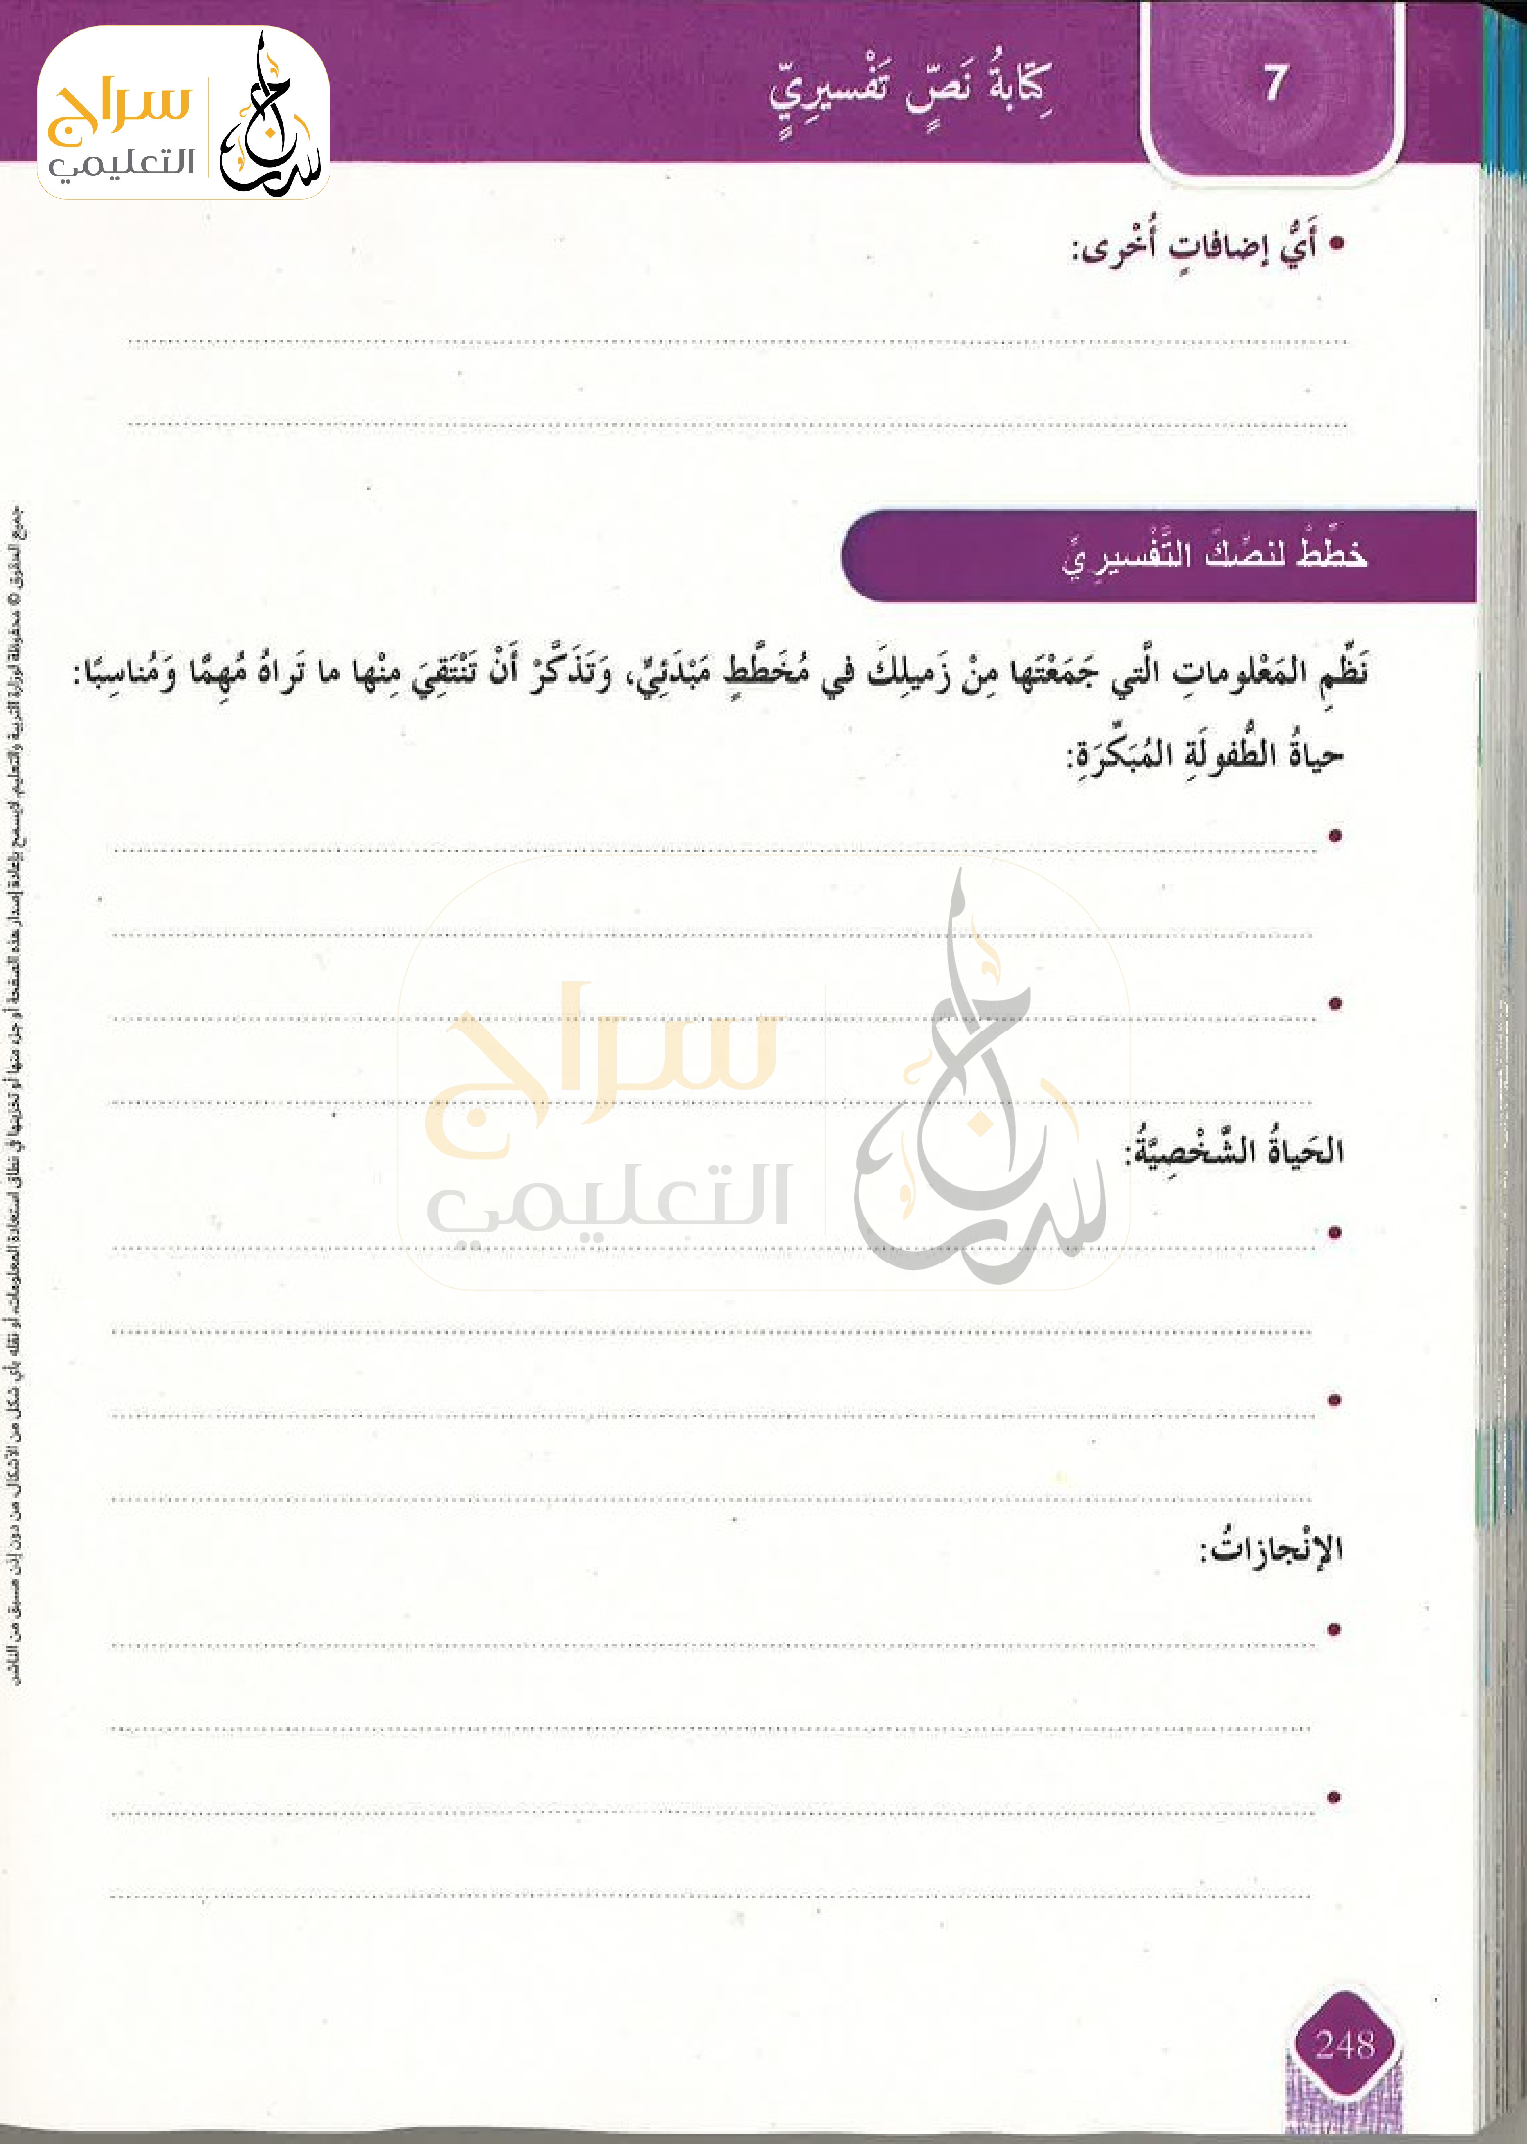 سراج
التعليمي
كِتابةُ نَصٍّ تَفْسيرِيٍّ
7
• أَيُّ إضافاتٍ أُخْرى:
خطِّطْ لنصِّكَ التَّفْسيرِيِّ
نَظِّمِ المَعْلوماتِ الَّتي جَمَعْتَها مِنْ زَميلِكَ في مُخَطَّطٍ مَبْدَئِيٍّ، وَتَذَكَّرْ أَنْ تَنْتَقِيَ مِنْها ما تَراهُ مُهِمًّا وَمُناسِبًا:
حياةُ الطُّفولَةِ المُبَكِّرَةِ:
سراج
التعليمي
الحَياةُ الشَّخْصِيَّةُ:
الإنْجازاتُ:
248
جميع الحقوق © محفوظة لوزارة التربية والتعليم. لايسمح بإعادة إصدار هذه الصفحة أو جزء منها أو تخزينها في نطاق استعادة المعلومات، أو نقله بأي شكل من الأشكال، من دون إذن مسبق من الناشر.